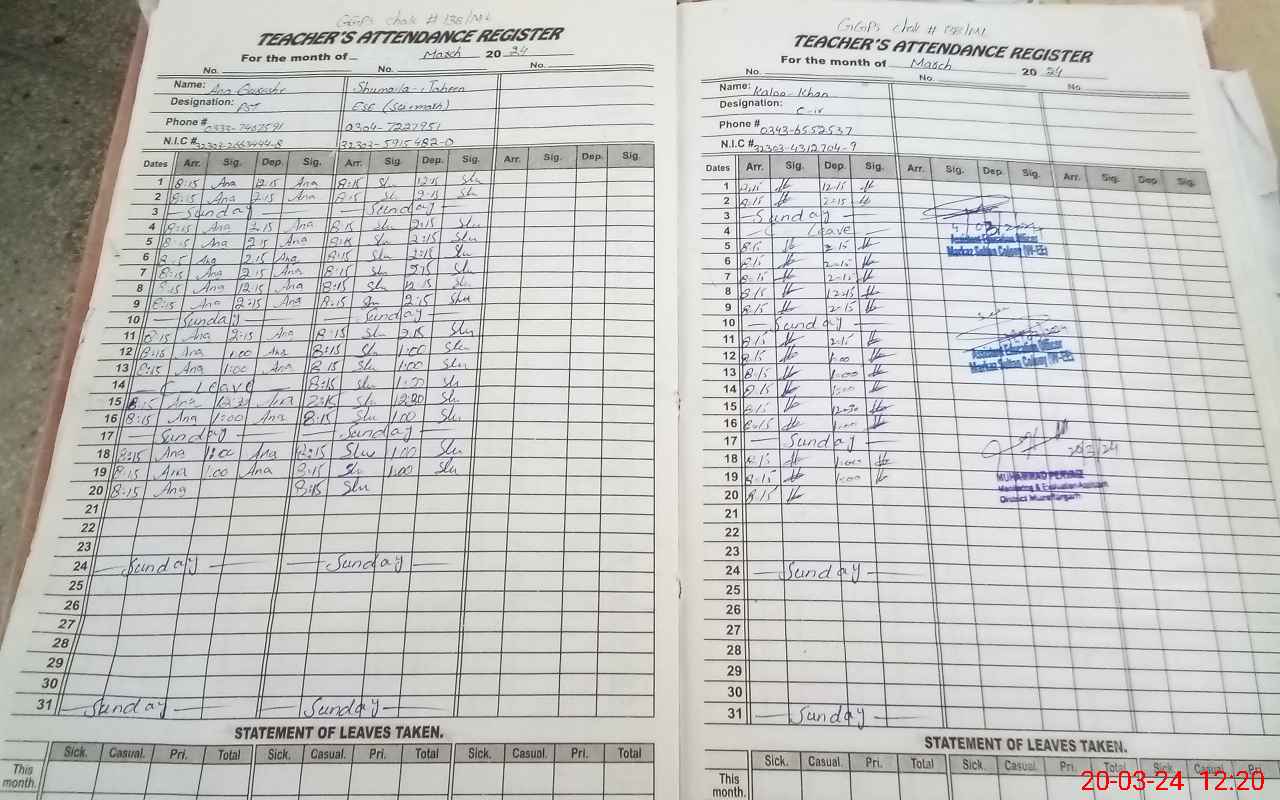 GGPS chak # 138/ML
TEACHER'S ATTENDANCE REGISTER
For the month of March 20 24
No. No. No.
Name: Shumaila
Designation: PST ESE (Sci-math)
Phone # 0333-7407591 0304-7227951
N.I.C # 32303-5915482-0
Dates Arr. Sig. Dep. Sig. Arr. Sig. Dep. Sig. Arr. Sig. Dep. Sig.
1 8:15 Ana 12:15 Ana 8:15 Shu 12:15 Shu
2 8:15 Ana 2:15 Ana 8:15 Shu 2:15 Shu
3 Sunday Sunday
4 8:15 Ana 2:15 Ana 8:15 Shu 2:15 Shu
5 8:15 Ana 2:15 Ana 8:15 Shu 2:15 Shu
6 8:15 Ana 2:15 Ana 8:15 Shu 2:15 Shu
7 8:15 Ana 2:15 Ana 8:15 Shu 2:15 Shu
8 8:15 Ana 12:15 Ana 8:15 Shu 12:15 Shu
9 8:15 Ana 2:15 Ana 8:15 Shu 2:15 Shu
10 Sunday Sunday
11 8:15 Ana 2:15 Ana 8:15 Shu 2:15 Shu
12 8:15 Ana 1:00 Ana 8:15 Shu 1:00 Shu
13 8:15 Ana 1:00 Ana 8:15 Shu 1:00 Shu
14 C Leave 8:15 Shu 1:00 Shu
15 8:15 Ana 12:30 Ana Shu Shu
16 8:15 Ana 1:00 Ana 8:15 Shu 1:00 Shu
17 Sunday Sunday
18 8:15 Ana 1:00 Ana 8:15 Shu 1:00 Shu
19 8:15 Ana 1:00 Ana 8:15 Shu 1:00 Shu
20 8:15 Ana 8:15 Shu
21
22
23
24 Sunday Sunday
25
26
27
28
29
30
31 Sunday Sunday
STATEMENT OF LEAVES TAKEN.
Sick. Casual. Pri. Total Sick. Casual. Pri. Total Sick. Casual. Pri. Total
This month.
GGPS chak # 138/ML
TEACHER'S ATTENDANCE REGISTER
For the month of March 20 24
No. No. No.
Name: Kaloo Khan
Designation: C-iv
Phone # 0343-6552537
N.I.C # 32303-4312704-9
Dates Arr. Sig. Dep. Sig. Arr. Sig. Dep. Sig. Arr. Sig. Dep. Sig.
1 8:15 12:15
2 8:15 2:15
3 Sunday
4 C Leave
5 8:15 2:15
Assistant Education Officer
Markaz Sultan Colony (W-EE)
6 8:15 2:15
7 8:15 2:15
8 8:15 12:15
9 8:15 2:15
10 Sunday
11 8:15 2:15
12 8:15 1:00
Assistant Education Officer
Markaz Sultan Colony (W-EE)
13 8:15 1:00
14 8:15 1:00
15 8:15 12:30
16 8:15 1:00
17 Sunday
20/3/24
18 8:15 1:00
19 8:15 1:00
MUHAMMAD PERVAIZ
Monitoring & Evaluation Assistant
District Muzaffargarh
20 8:15
21
22
23
24 Sunday
25
26
27
28
29
30
31 Sunday
STATEMENT OF LEAVES TAKEN.
Sick. Casual. Pri. Total Sick. Casual. Pri. Total Sick. Casual. Pri.
This month.
20-03-24 12.20